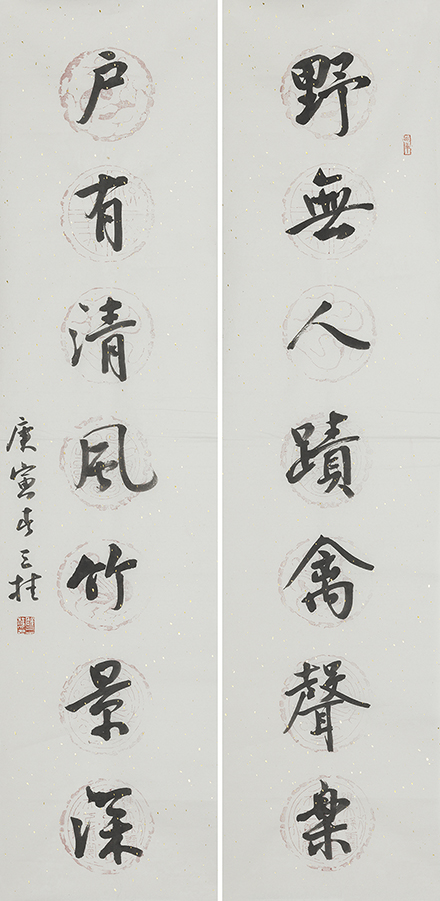 野無人蹟禽聲樂
戶有清風竹景深
庚寅春三桂